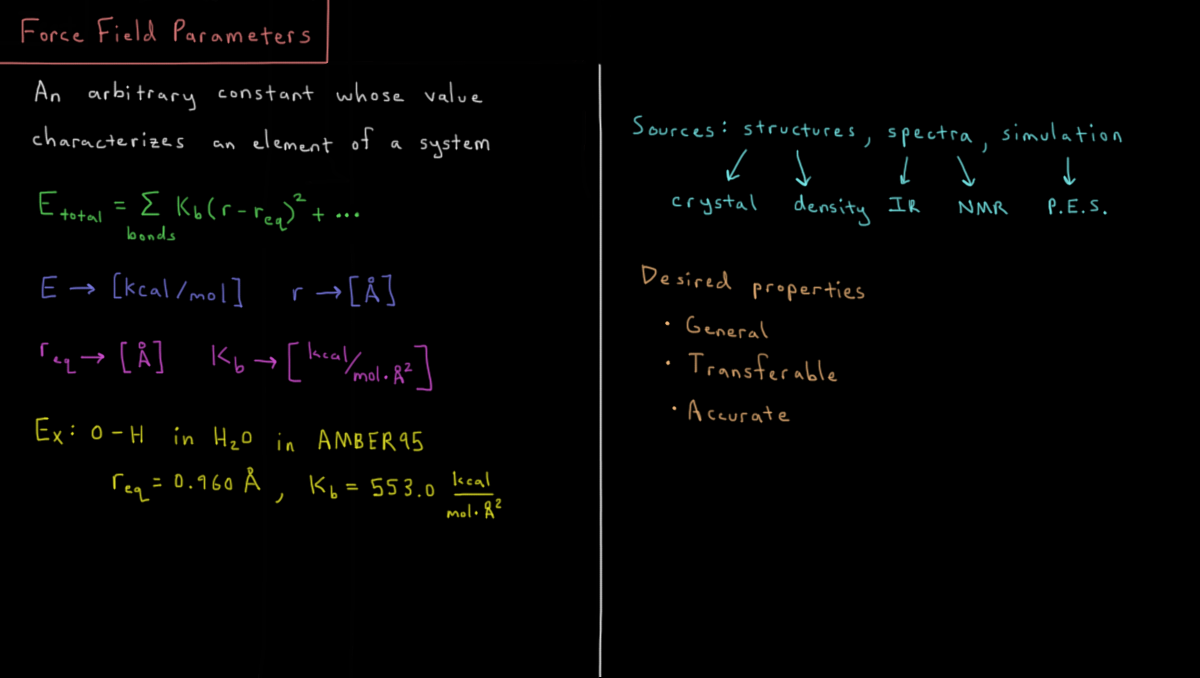 Force Field Parameters
An arbitrary constant whose value
characterizes an element of a system
E_total = Σ_bonds K_b(r-r_eq)² + ...
E → [kcal/mol] r → [Å]
r_eq → [Å] K_b → [kcal/mol·Å²]
Ex: O-H in H₂O in AMBER95
r_eq = 0.960 Å, K_b = 553.0 kcal/mol·Å²
Sources: structures, spectra, simulation
crystal density IR NMR P.E.S.
Desired properties
• General
• Transferable
• Accurate